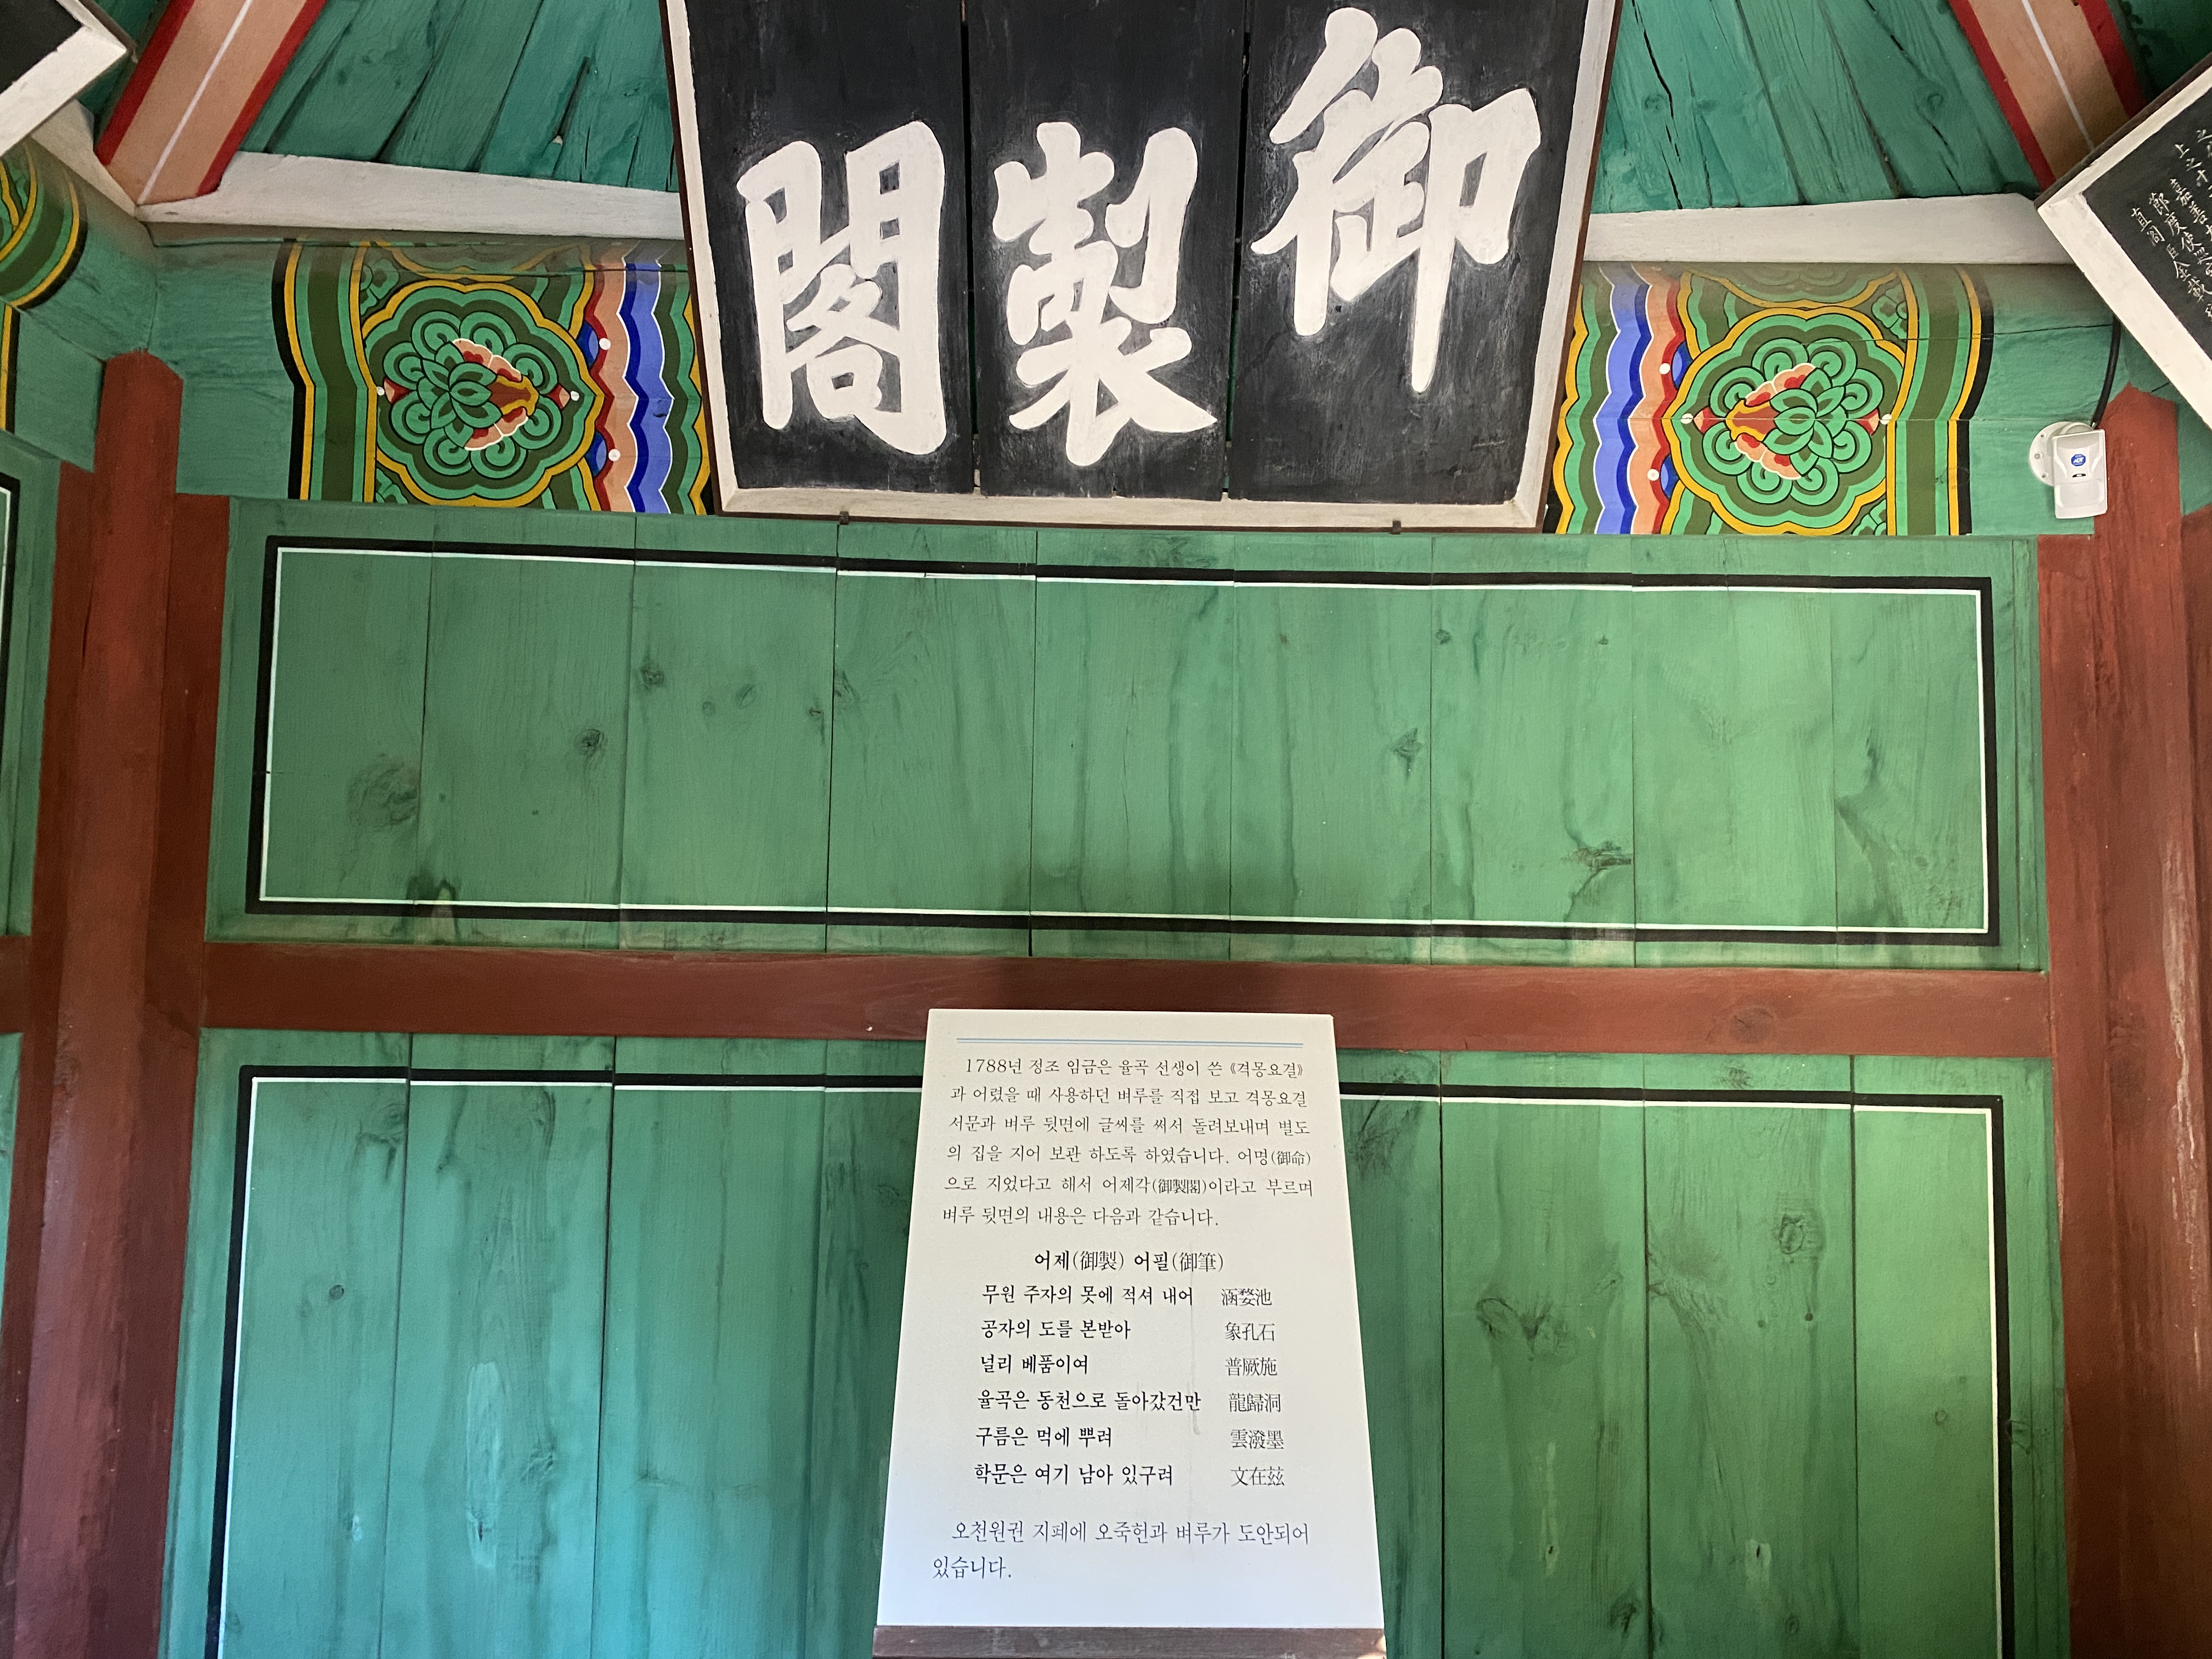 御製閣
1788년 정조 임금은 율곡 선생이 쓴 《격몽요결》
과 어렸을 때 사용하던 벼루를 직접 보고 격몽요결
서문과 벼루 뒷면에 글씨를 써서 돌려보내며 별도
의 집을 지어 보관 하도록 하였습니다. 어명(御命)
으로 지었다고 해서 어제각(御製閣)이라고 부르며
벼루 뒷면의 내용은 다음과 같습니다.
어제(御製) 어필(御筆)
무원 주자의 못에 적셔 내어 涵婺池
공자의 도를 본받아 象孔石
널리 베풂이여 普厥施
율곡은 동천으로 돌아갔건만 龍歸洞
구름은 먹에 뿌려 雲潑墨
학문은 여기 남아 있구려 文在玆
오천원권 지폐에 오죽헌과 벼루가 도안되어
있습니다.